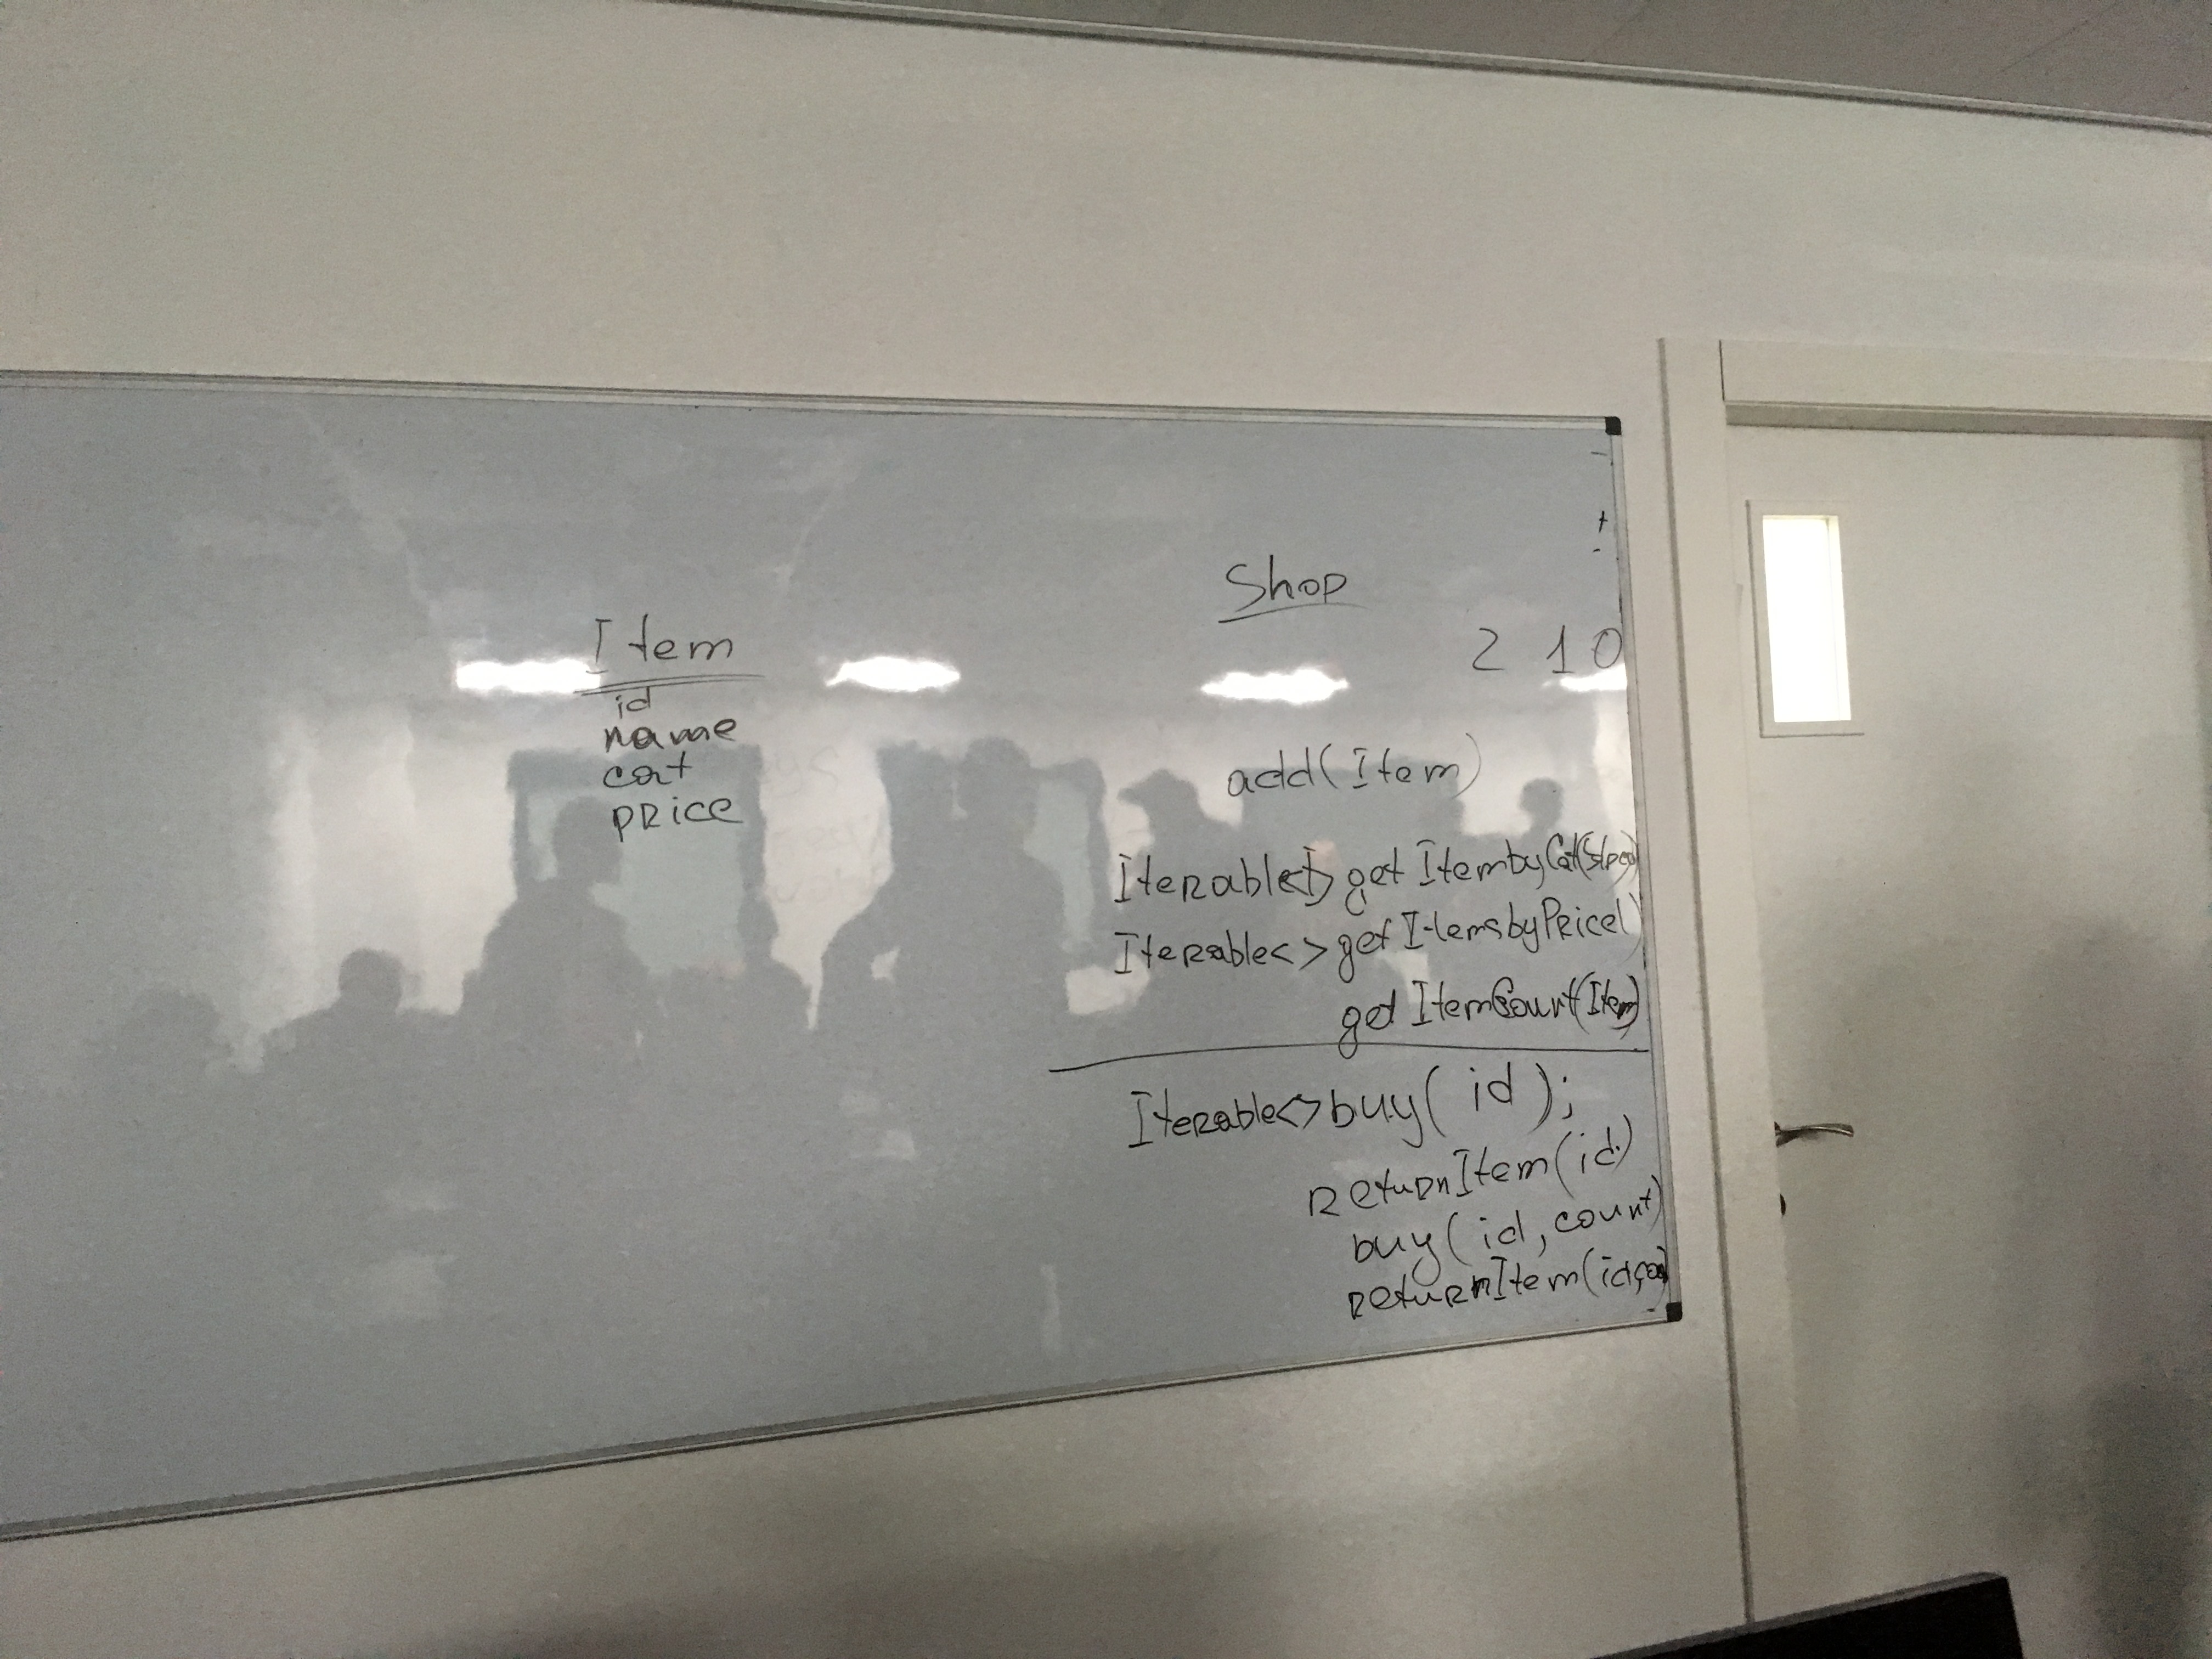 Item
id
name
cat
price
Shop
2 1 0
add(Item)
Iterable<I> get ItembyCat(
Iterable<> get ItemsbyPrice()
get ItemCount(Item)
Iterable<> buy( id );
returnItem(id)
buy( id, count)
returnItem(id,